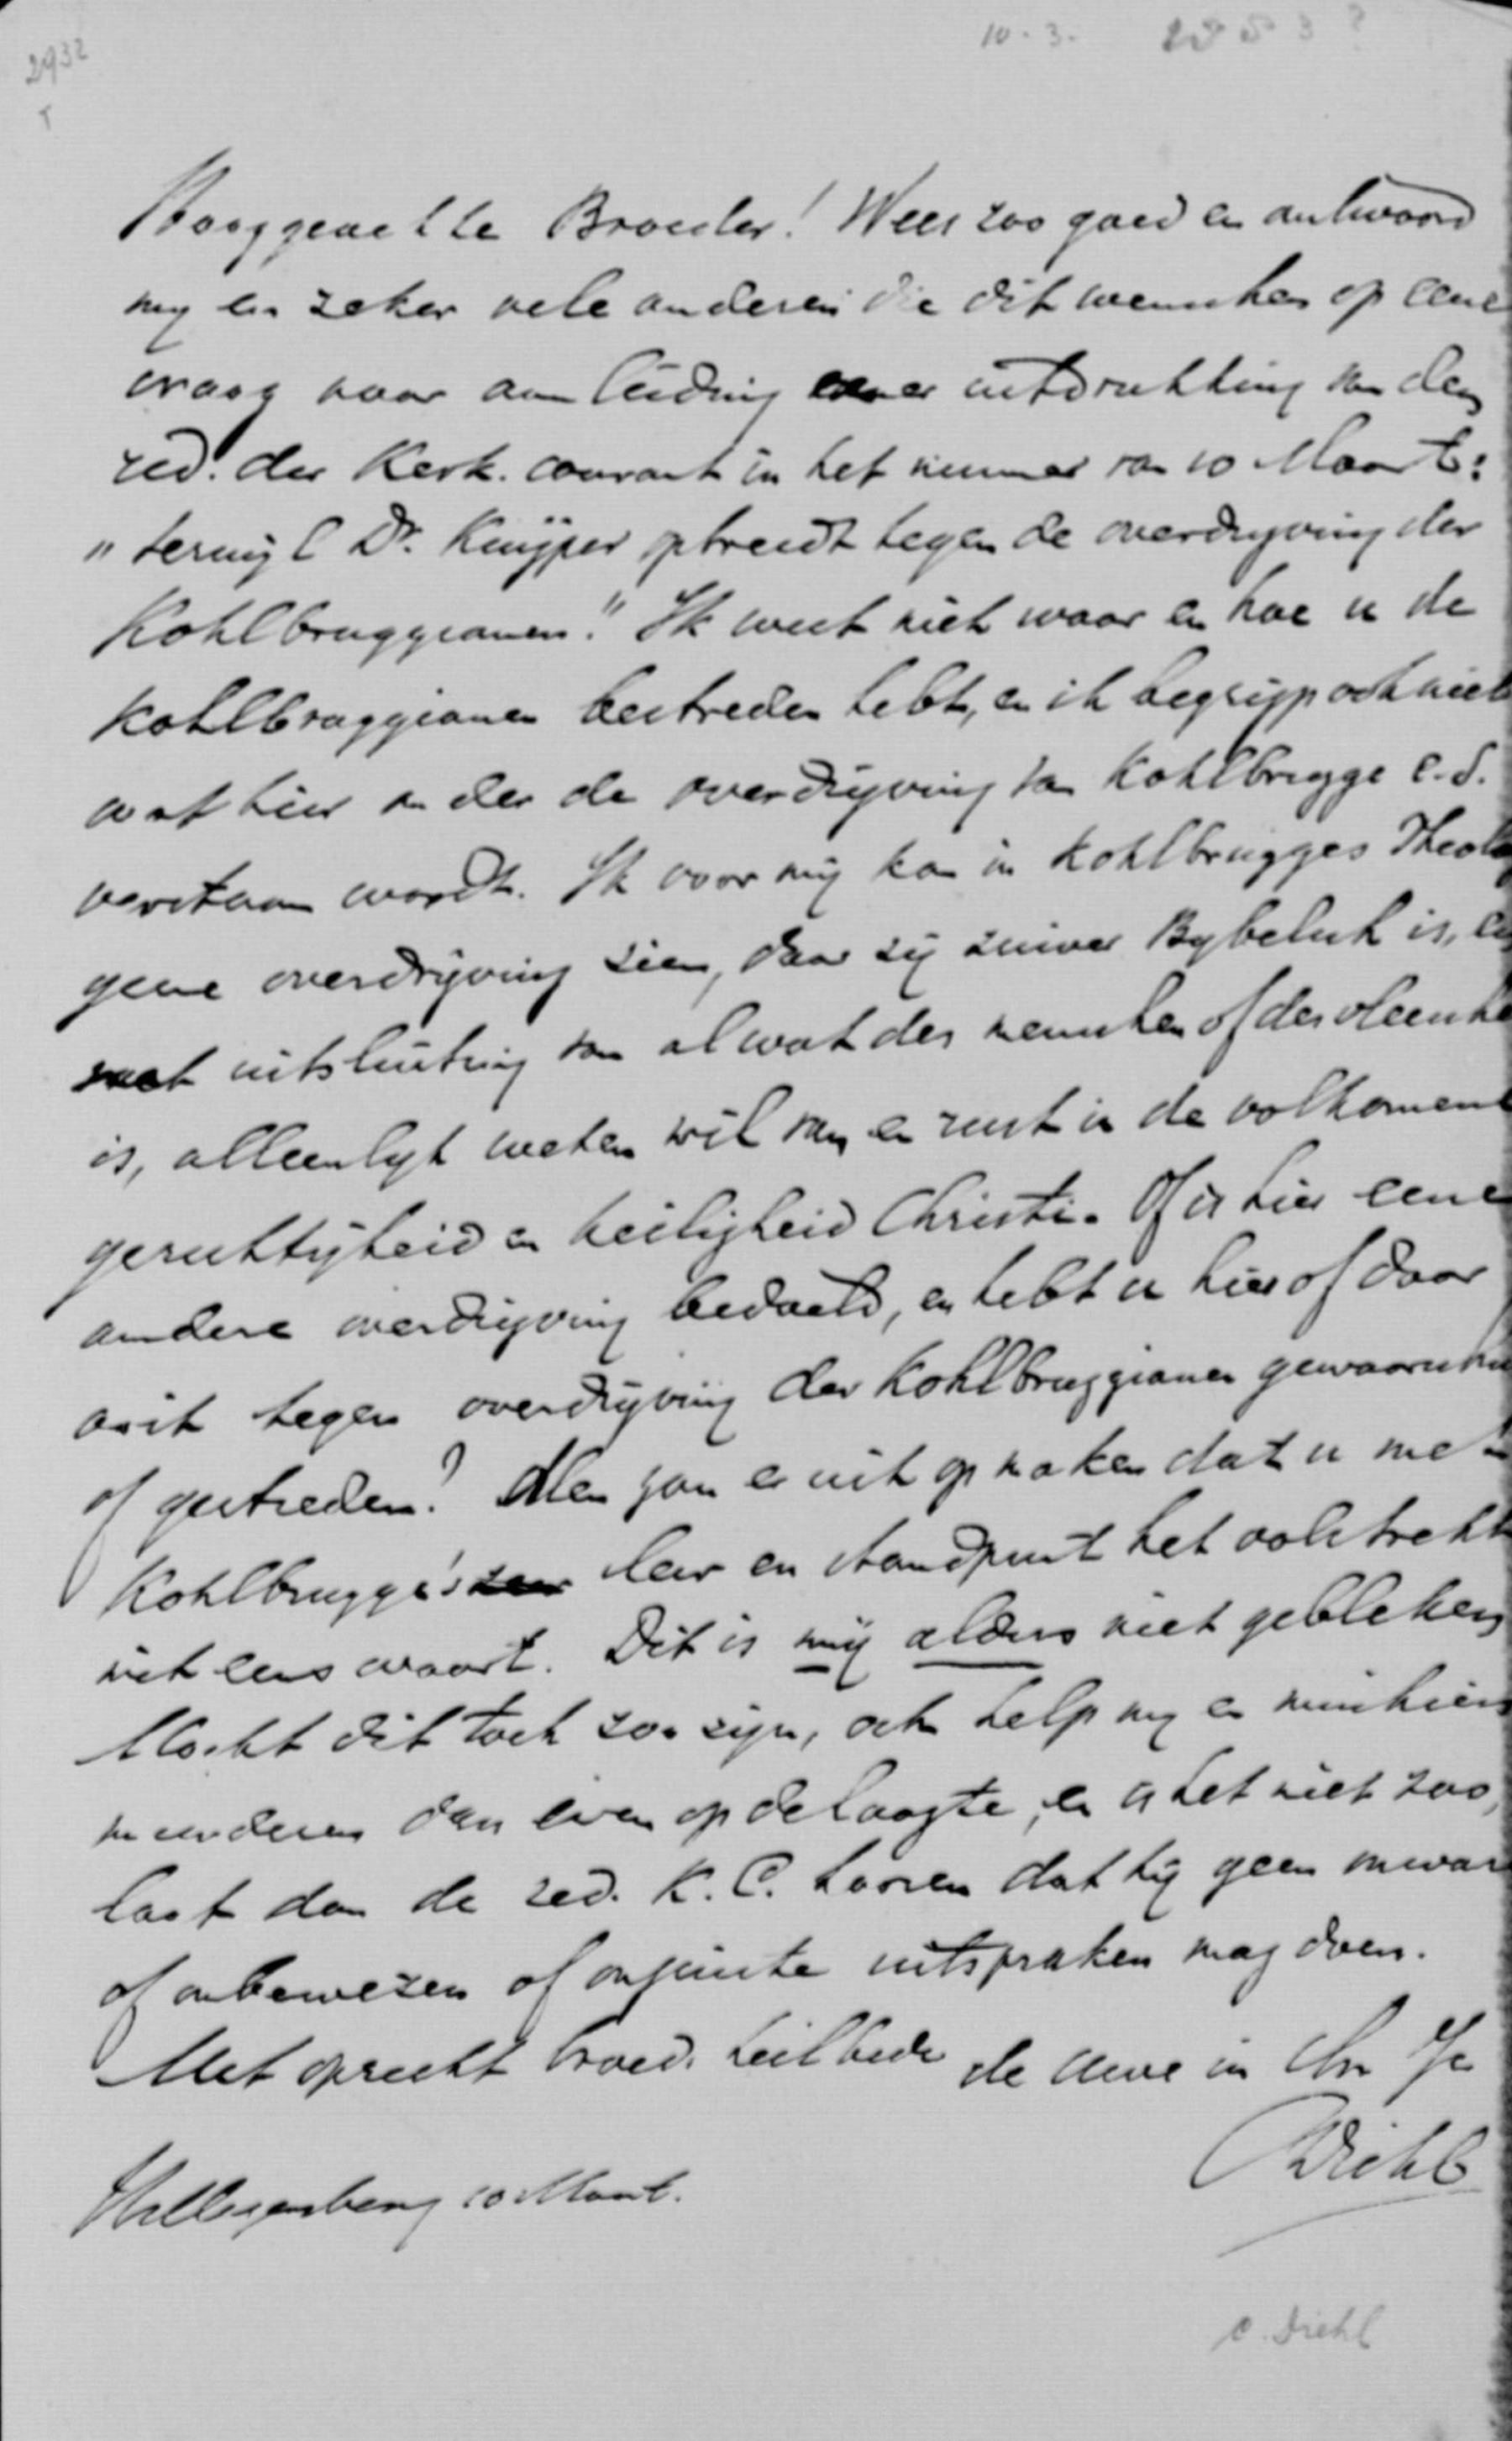 2932
10-3.
Hooggeachte Broeder! Wees zoo goed en antwoord
my en zeker vele anderen die dit wenschen op eene
vraag naar aanleiding eener uitdrukking van den
red. der Kerk. courant in het nummer van 10 Maart:
"terwijl Dr. Kuijper optreedt tegen de overdryving der
Kohlbruggianen." Ik weet niet waar en hoe u de
Kohlbruggianen bestreden hebt, en ik begryp ook niet
wat hier onder de overdryving van Kohlbrugge c.s.
verstaan wordt. Ik voor mij kan in Kohlbrugges Theolo
geene overdrijving zien, daar zij zuiver Bybelsch is, en
met uitsluiting van al wat des menschen of des vleesche
is, alleenlyk weten wil van en rust in de volkomene
geruchtigheid en heiligheid Christi. Of is hier eene
andere overdryving bedoeld, en hebt u hier of daar
ooit tegen overdryving der Kohlbruggianen gewaarschu
of gestreden? Men zou er uit opmaken dat u met
Kohlbrugge's leer en standpunt het volstrekt
niet eens waart. Dit is mij alders niet gebleken
Mocht dit toch zoo zijn, och help my en minkien
meerderen dan even op de hoogte, en is het niet zoo,
laat dan de red. K. C. hooren dat hij geen onwar
of onbewezen of onjuiste uitspraken mag doen.
Met oprecht broed. heilbede de uwe in Chr Je
Diehl
Hillegersberg 10 Maart.
C. Diehl